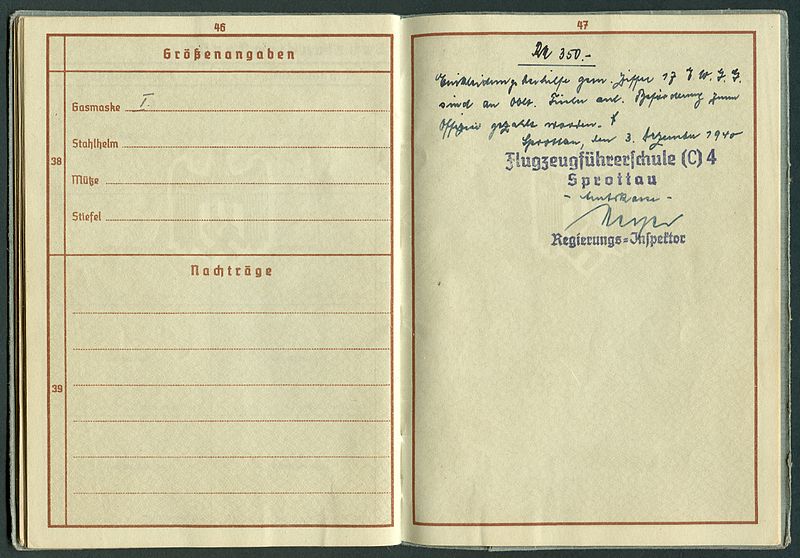 46
Größenangaben
38
Gasmaske I.
Stahlhelm
Mütze
Stiefel
Nachträge
39
47
RM 350.-
Einkleidungsbeihilfe gem. Ziffer 17
sind an Oblt. anl. Beförderung zum
Offizier gezahlt worden.
Sprottau, den 3. Dezember 1940
Flugzeugführerschule (C) 4
Sprottau
- Amtskasse -
Meyer
Regierungs=Inspektor